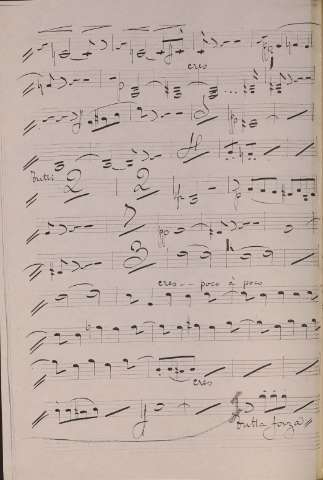 cres
Tutti
2 2
7
3
cres - - poco à poco
cres
tutta forza